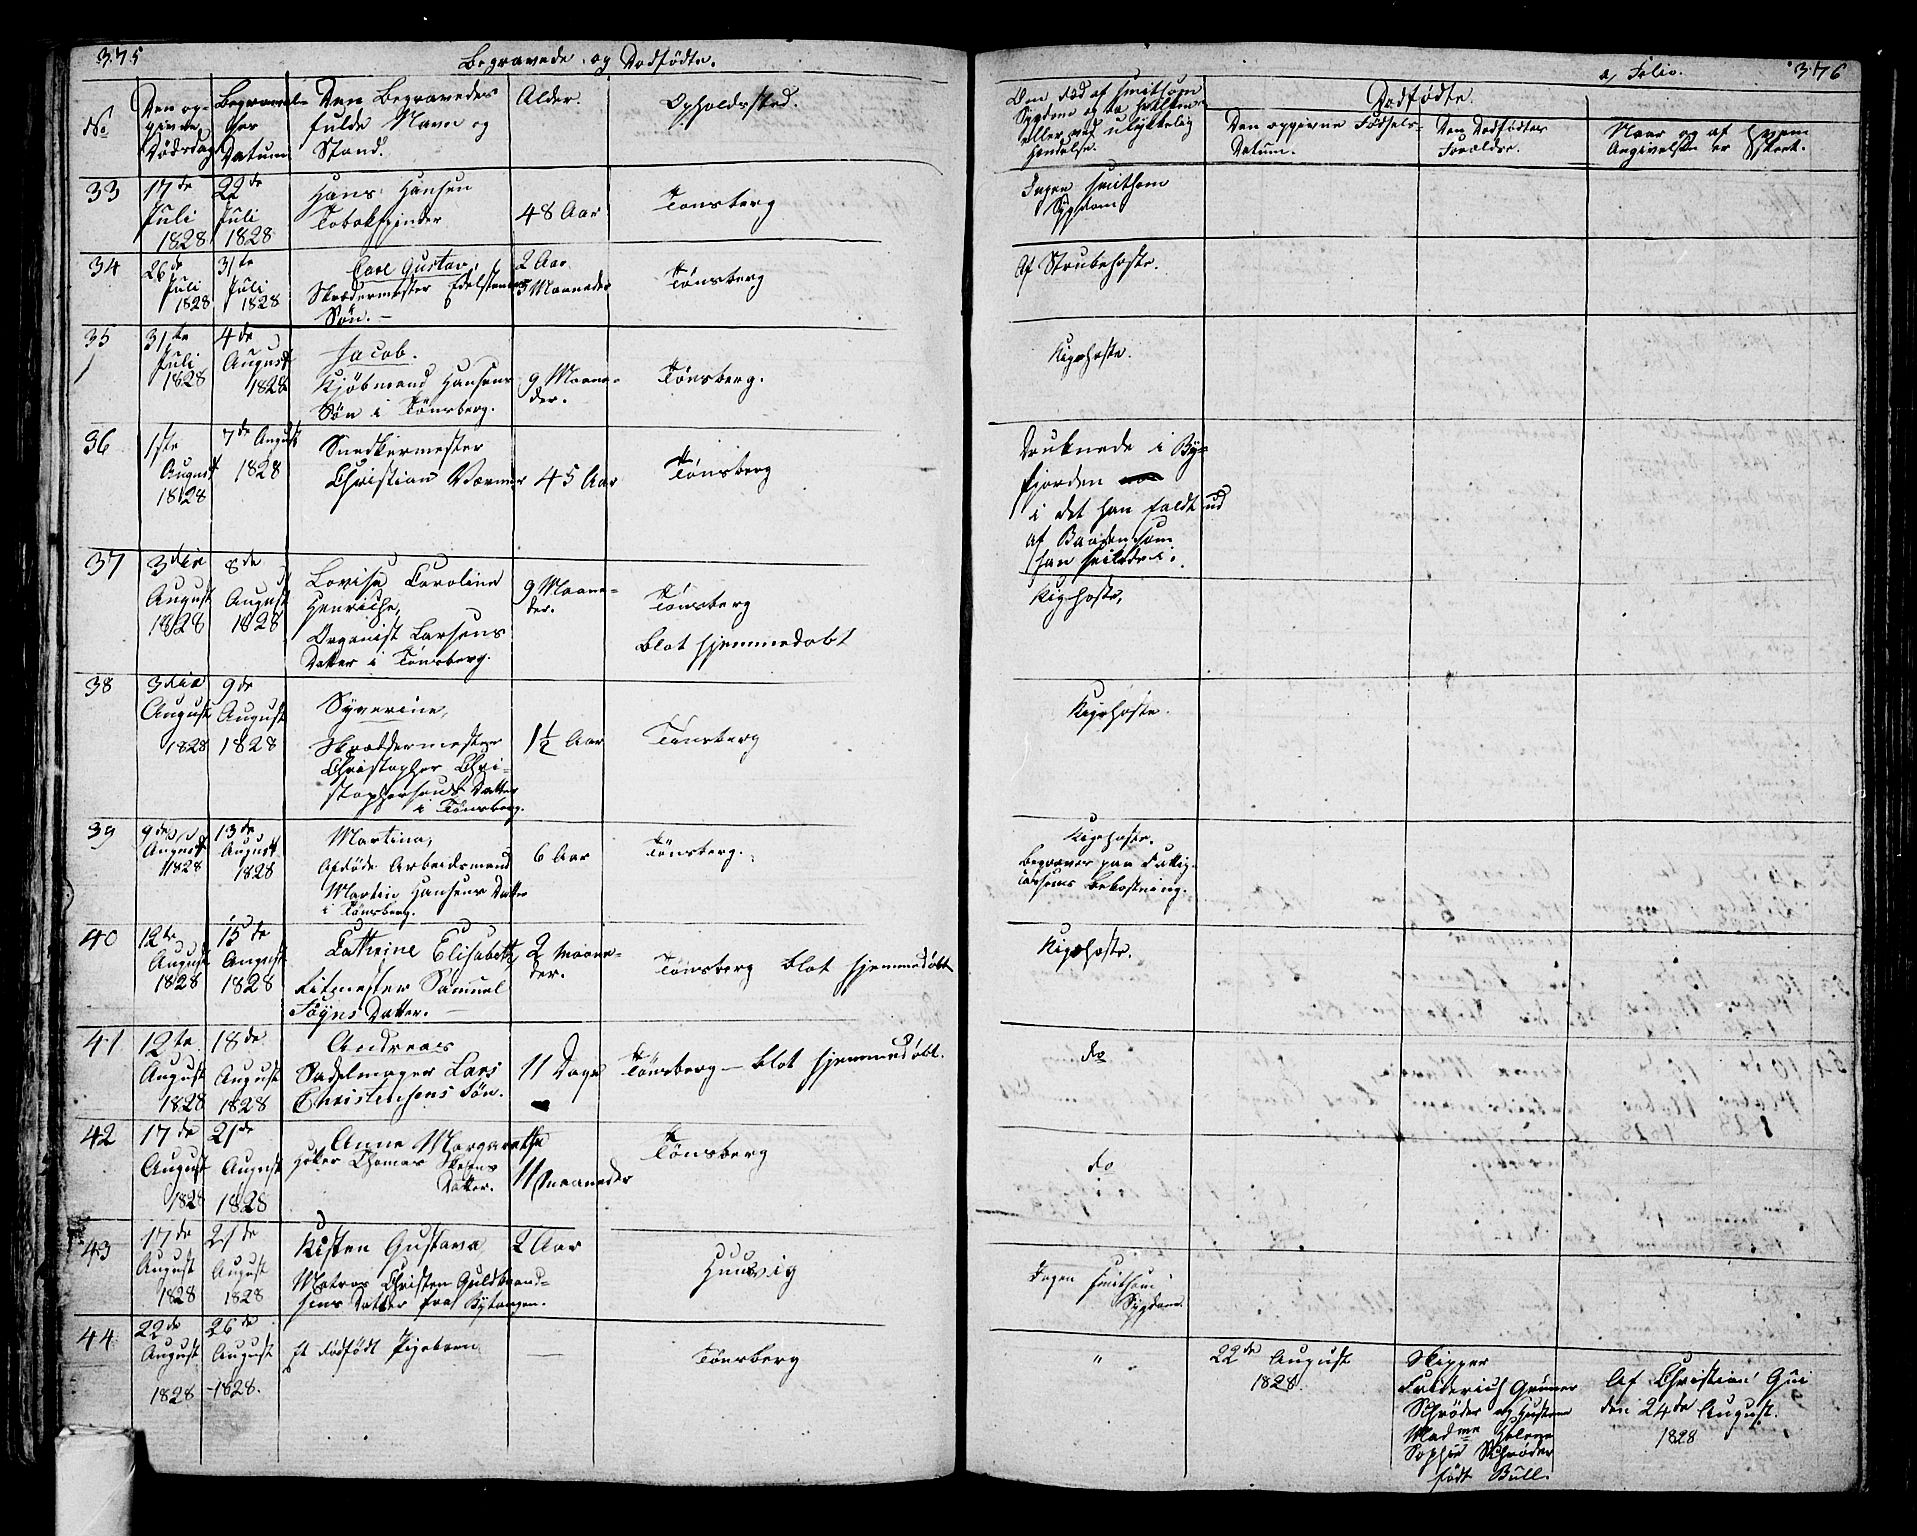 375
Begravede og Dødfødte.
No
Den op-
givne
Dødsdag
Begravel-
ses
Datum
Den Begravedes
fulde Navn og
Stand.
Alder.
Opholdssted.
33
17de
Juli
1828
22de
Juli
1828
Hans Hansen
Tobakspinder
48 Aar
Tønsberg
34
26de
Juli
1828
31te
Juli
1828
Carl Gustav,
Skrædermester Edelstens
Søn.
2 Aar
3 Maaneder
Tønsberg
35
31te
Juli
1828
4de
August
1828
Jacob.
Kjøbmand Hansens
Søn i Tønsberg.
9 Maane-
der.
Tønsberg.
36
1ste
August
1828
7de August
1828
Snedkermester
Christian Werner
45 Aar
Tønsberg
37
3die
August
1828
8de
August
1828
Lovise Caroline
Henriche,
Organist Larsens
Datter i Tønsberg.
9 Maane-
der.
Tønsberg
blot hjemmedøbt
38
3die
August
1828
9de
August
1828
Syverine,
Skræddermester
Christopher Chri-
stophersens Datter
i Tønsberg.
1½ Aar
Tønsberg
39
9de
August
1828
13de
August
1828
Martina,
Afdøde Arbeidsmand
Martin Hansens Datter
i Tønsberg.
6 Aar
Tønsberg.
40
12te
August
1828
15de
August
1828
Cathrine Elisabeth,
Ritmester Samuel
Føyns Datter.
2 Maane-
der.
Tønsberg blot hjemmedøbt
41
12te
August
1828
18de
August
1828
Andreas
Sadelmager Lars
Christensens Søn.
11 Dage
Tønsberg – blot hjemmedøbt.
42
17de
August
1828
21de
August
1828
Anne Margarethe
Høker Thomas
Datter.
11 Maaneder
Tønsberg
43
17de
August
1828
21de
August
1828
Kisten Gustava
Matros Christen Guldbrand-
sens Datter fra Bytangen.
2 Aar
Huusvig
44
22de
August
1828
26de
August
1828.
Et dødfødt Pigebarn
—
Tønsberg
a, Folio.
376
Om død af smitsom
Sygdom og da hvilken
eller ved ulykkelig
Hændelse.
Dødfødte.
Den opgivne Fødsels-
Datum.
Den Dødfødtes
Forældre.
Naar og af hvem
Angivelsen er skeet.
Ingen smitsom
Sygdom
Af Strubehoste.
Kighoste.
Druknede i By-
fjorden
i det han faldt ud
af Baaden som
han seilede i.
Kighoste,
Kighoste.
Kighoste.
Begraves paa Fattig-
Cassens Bekostning.
Kighoste.
do
do
Ingen smitsom
Sygdom
"
22de August
1828.
Skipper
Friderich Grüner
Schrøder og Hustrue
Madme Helene
Sophie Schrøder
født Bull.
Af Christian Gui
den 24de August.
1828